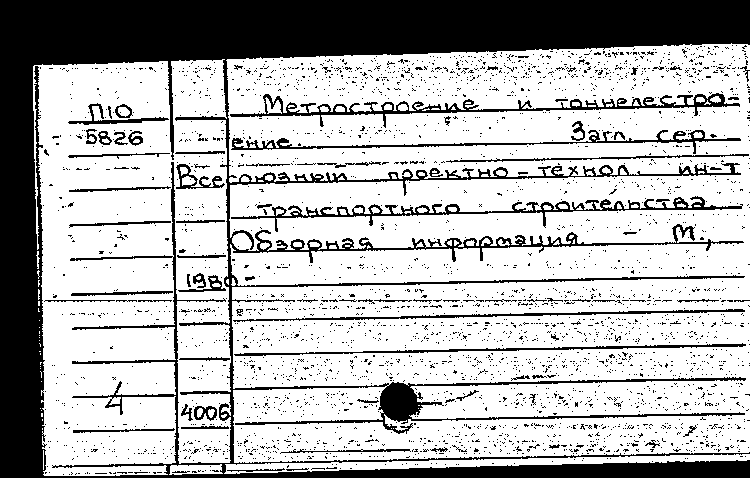 П10 Метростроение и тоннелестро-
5826 ение. Загл. сер.
Всесоюзный проектно-технол. ин-т
транспортного строительства.
Обзорная информация. - М.,
1980-
4
4006